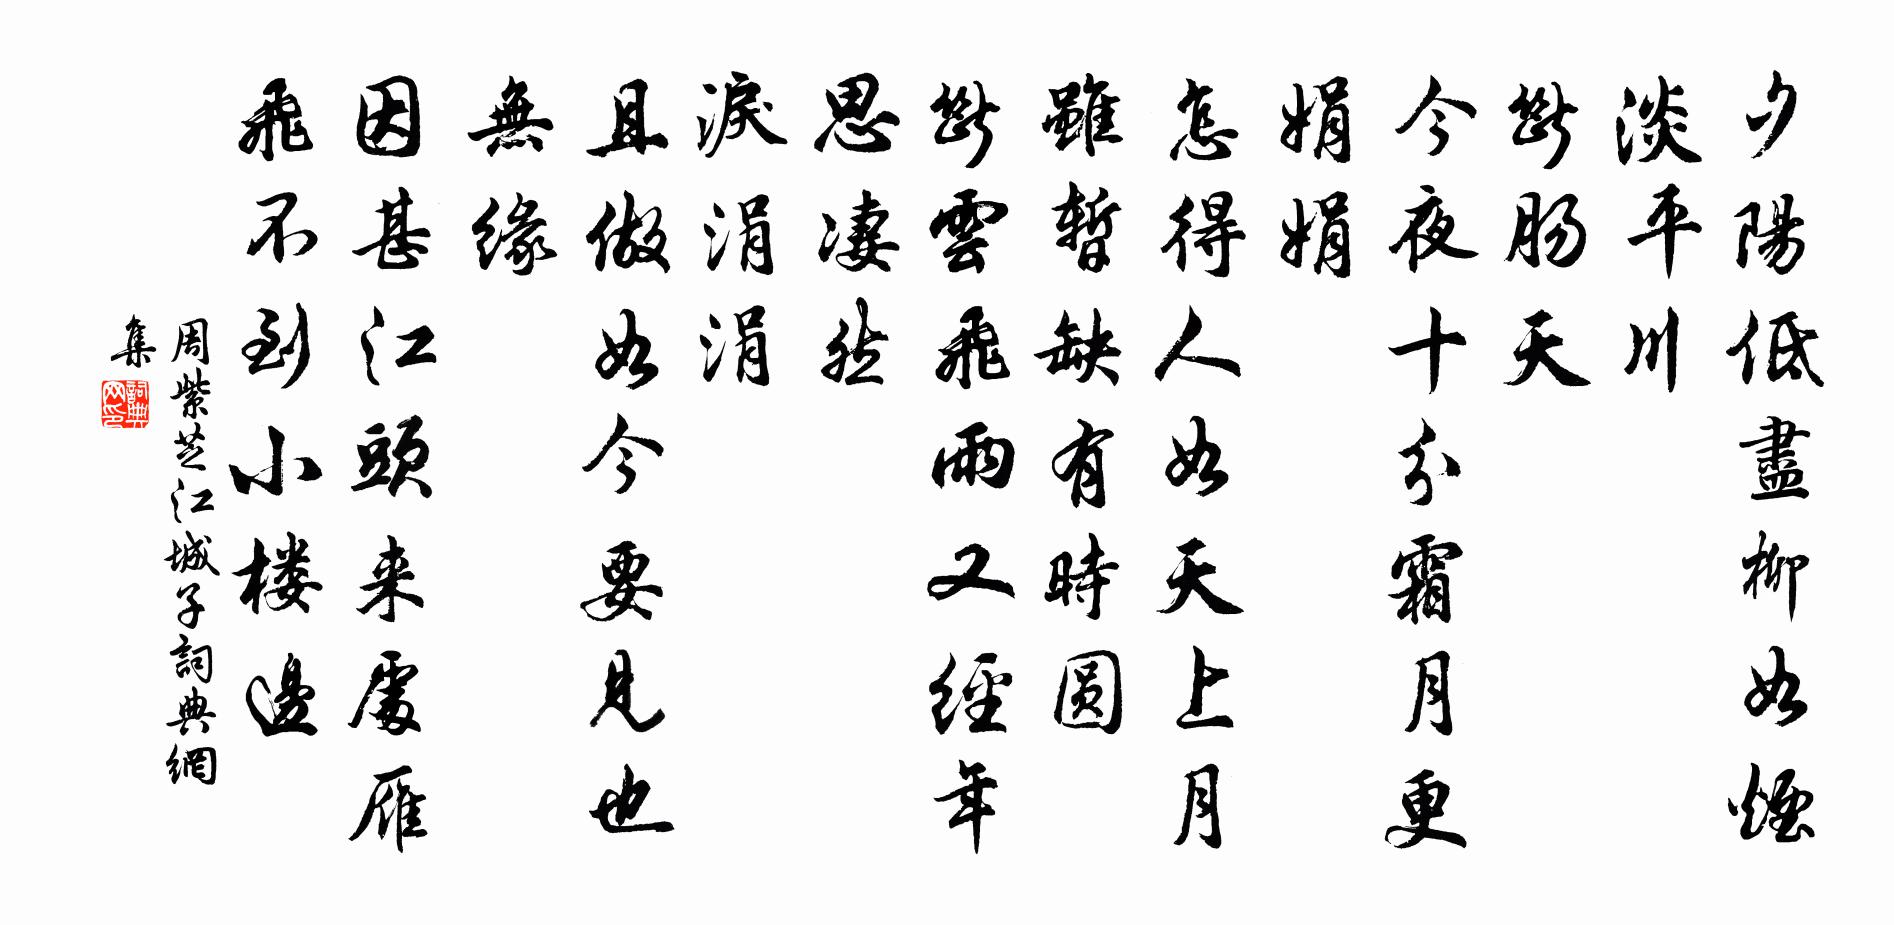 夕陽低盡柳如煙
淡平川
斷腸天
今夜十分霜月更
娟娟
怎得人如天上月
雖暫缺有時圓
斷雲飛雨又經年
思凄然
淚涓涓
且做如今要見也
無緣
因甚江頭来處雁
飛不到小楼邊
周紫芝江城子詞典網
集
詞典网印